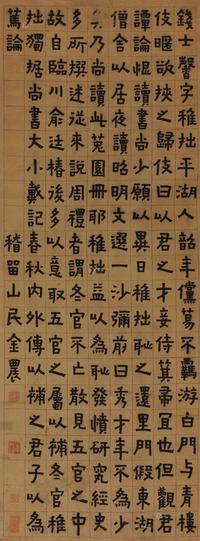 錢士馨字稚拙平湖人韶年儻蕩不羈游白門與青樓
伎暱欲挾之歸伎曰以君之才妾侍箕帚宜也但觀君
譚論恨讀書尚少願以異日稚拙恥之還里門假東湖
僧舍以居夜讀昭明文選一沙彌前曰秀才年不
少乃尚讀此菟園冊耶稚拙益以為恥發憤研究經史
多所撰述從來說周禮者謂冬官不亡散見五官之中
故自臨川俞廷椿後多以意取五官之屬以補冬官稚
拙獨據尚書大小戴記春秋內外傳以補之君子以為
篤論
稽留山民金農